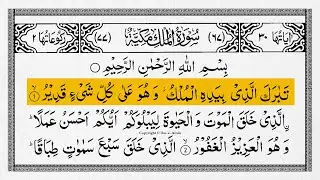 اٰیَاتُهَا ٣٠ (٦٧) سُوْرَةُ الْمُلْكِ مَكِّیَّةٌ (٧٧) رُكُوْعَاتُهَا ٢
بِسْمِ اللّٰهِ الرَّحْمٰنِ الرَّحِیْمِ
تَبٰرَكَ الَّذِیْ بِیَدِهِ الْمُلْكُ وَهُوَ عَلٰی كُلِّ شَیْءٍ قَدِیْرُ ۙ﴿١﴾
اۨلَّذِیْ خَلَقَ الْمَوْتَ وَالْحَیٰوةَ لِیَبْلُوَكُمْ اَیُّكُمْ اَحْسَنُ عَمَلًا ؕ
وَهُوَ الْعَزِیْزُ الْغَفُوْرُ ۙ﴿٢﴾ الَّذِیْ خَلَقَ سَبْعَ سَمٰوٰتٍ طِبَاقًا ؕ